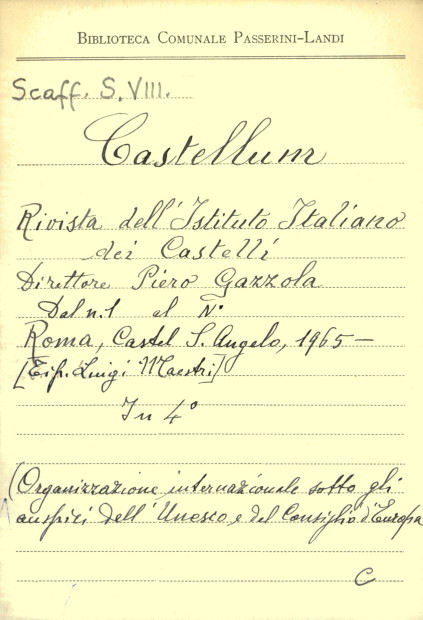 BIBLIOTECA COMUNALE PASSERINI-LANDI
Scaff. S. VIII.
Castellum
Rivista dell'Istituto Italiano
dei Castelli
Direttore Piero Gazzola
Dal n. 1 al N.
Roma, Castel S. Angelo, 1965 —
[Tip. Luigi Maestri]
In 4°
(Organizzazione internazionale sotto gli
auspici dell'Unesco e del Consiglio d'Europa
C